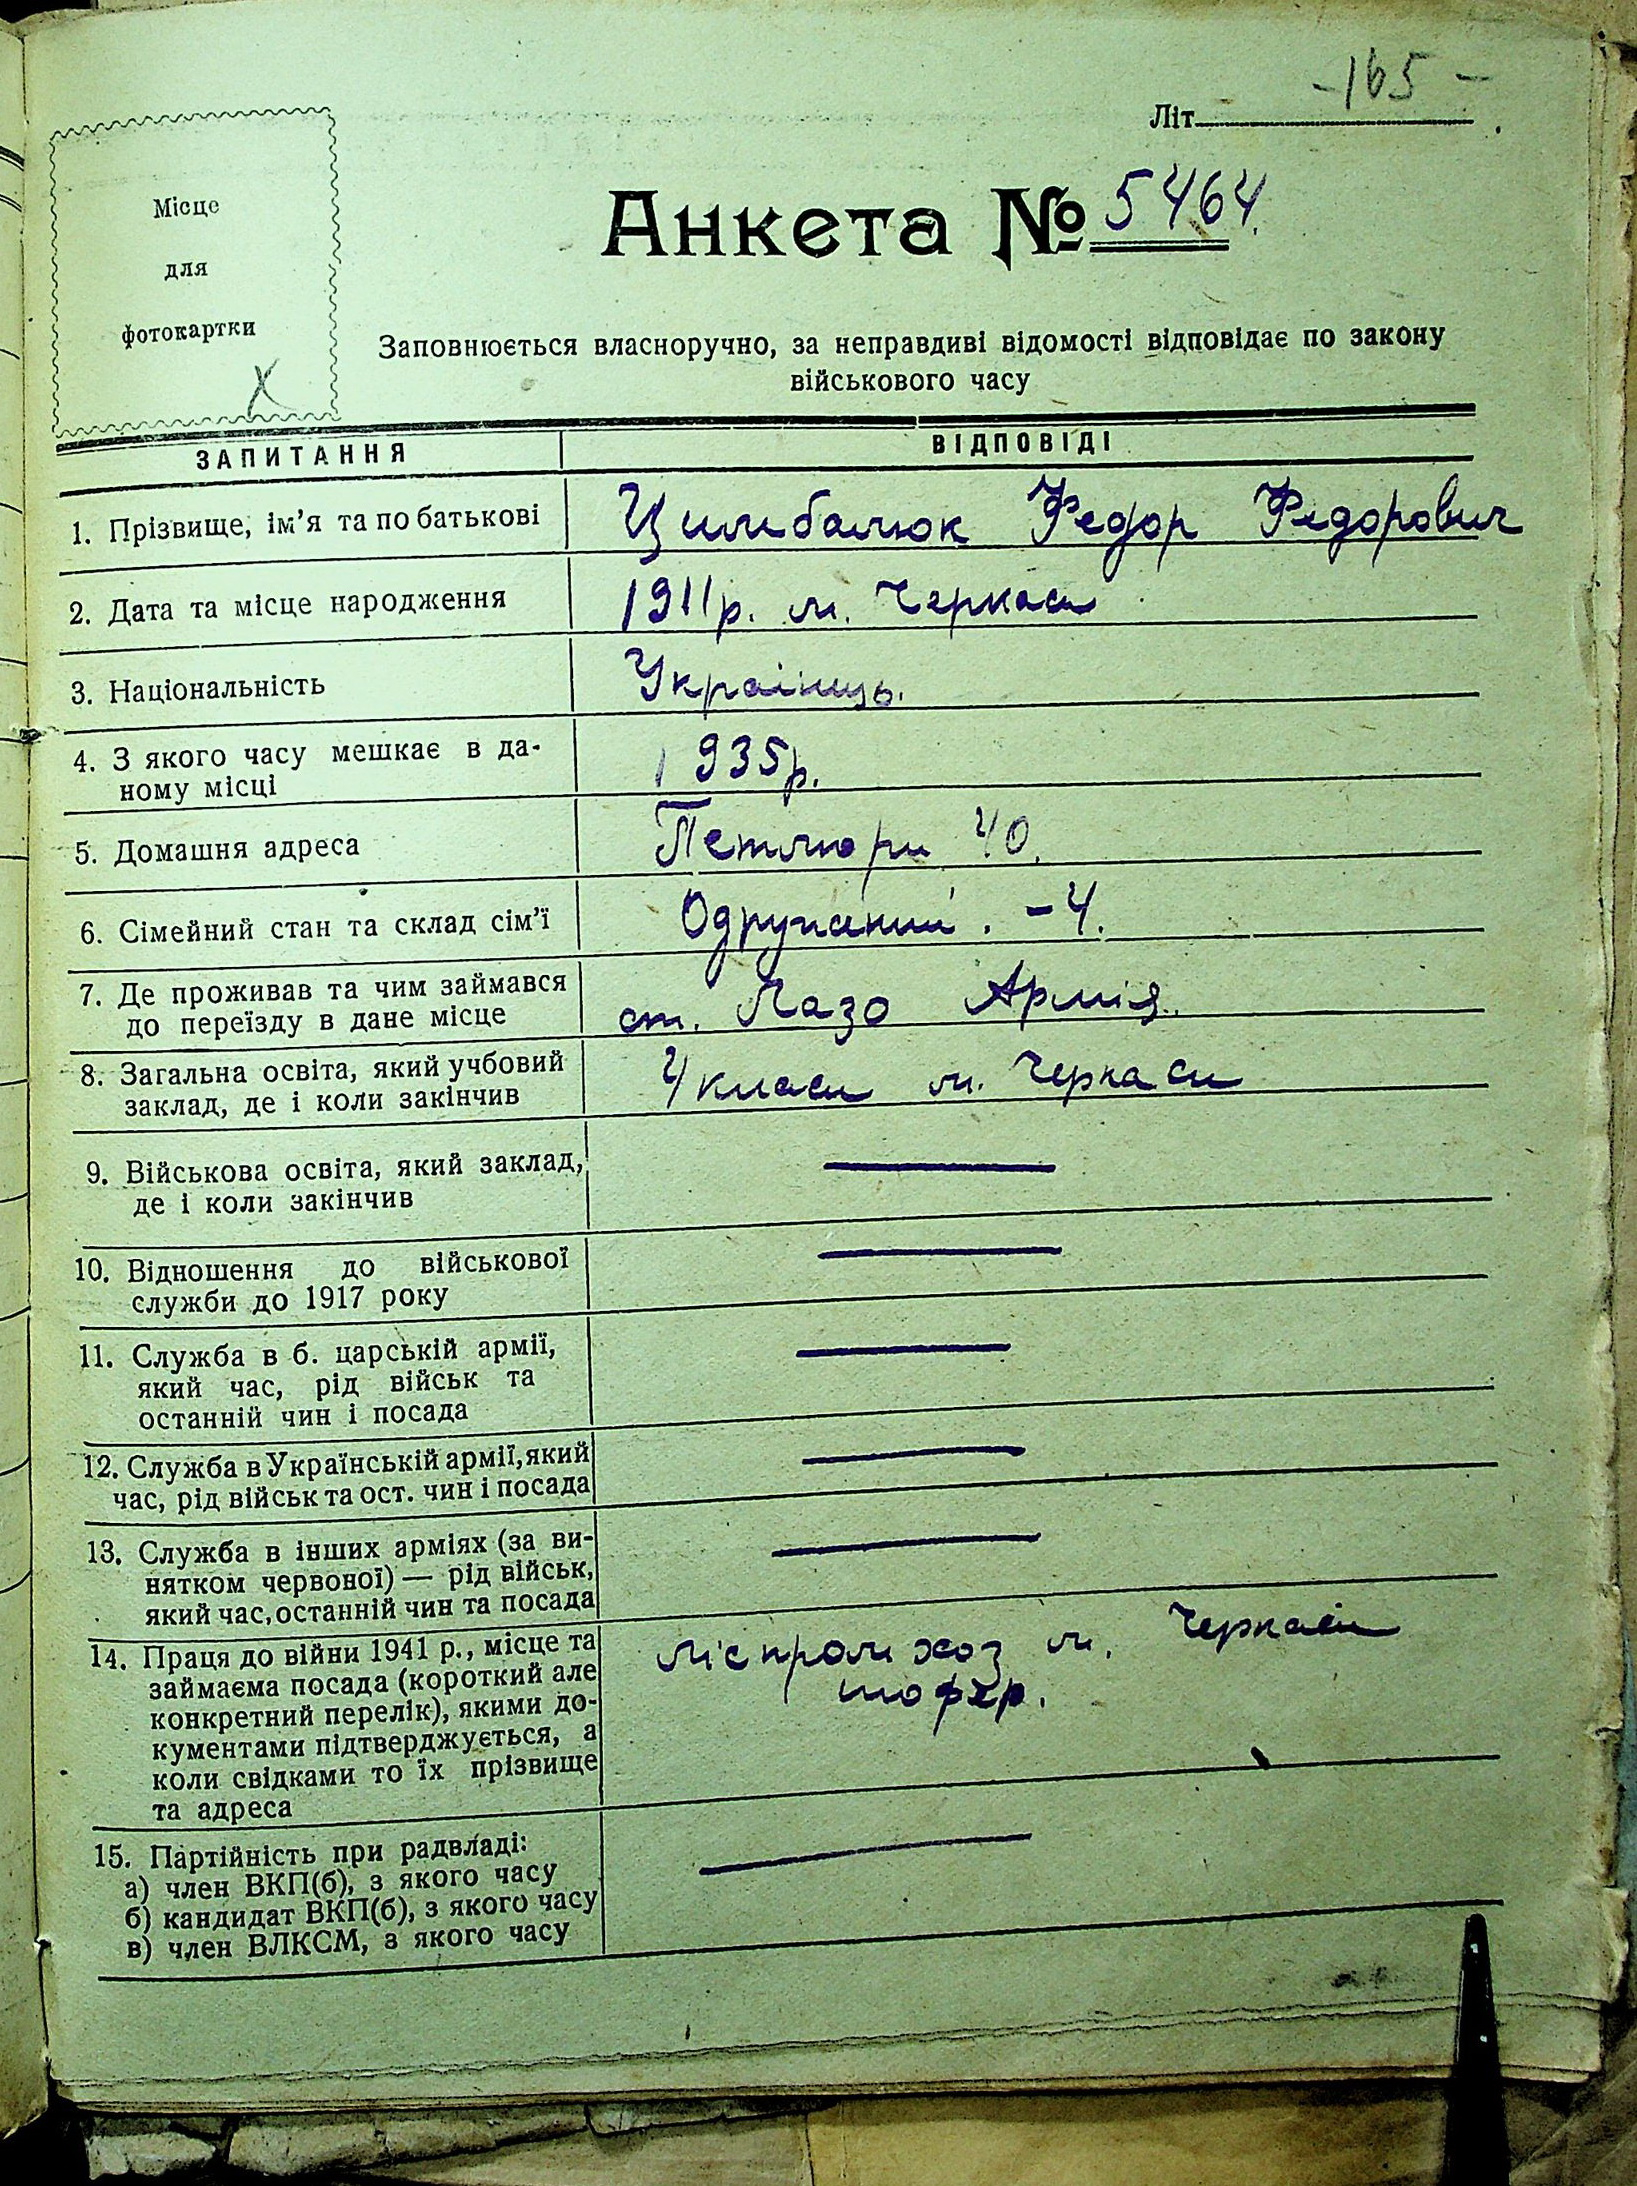 -165-
Літ
Місце
для
фотокартки
Х
Анкета № 5464.
Заповнюється власноручно, за неправдиві відомості відповідає по закону
військового часу
ЗАПИТАННЯ ВІДПОВІДІ
1. Прізвище, ім'я та по батькові Цимбалюк Федор Федорович
2. Дата та місце народження 1911р. м. Черкаси
3. Національність Українць.
4. З якого часу мешкає в да- 1935р.
ному місці
5. Домашня адреса Петлюри 40.
6. Сімейний стан та склад сім'ї Одружений. -4.
7. Де проживав та чим займався ст. Лазо Армія.
до переїзду в дане місце
8. Загальна освіта, який учбовий 4 класи м. Черкаси
заклад, де і коли закінчив
9. Військова освіта, який заклад, —
де і коли закінчив
10. Відношення до військової —
служби до 1917 року
11. Служба в б. царській армії, —
який час, рід військ та
останній чин і посада
12. Служба в Українській армії, який —
час, рід військ та ост. чин і посада
13. Служба в інших арміях (за ви- —
нятком червоної) — рід військ,
який час, останній чин та посада
14. Праця до війни 1941 р., місце та ліспромхоз м. Черкаси
займаєма посада (короткий але шофер.
конкретний перелік), якими до-
кументами підтверджується, а
коли свідками то їх прізвище
та адреса
15. Партійність при радвладі: —
а) член ВКП(б), з якого часу
б) кандидат ВКП(б), з якого часу
в) член ВЛКСМ, з якого часу